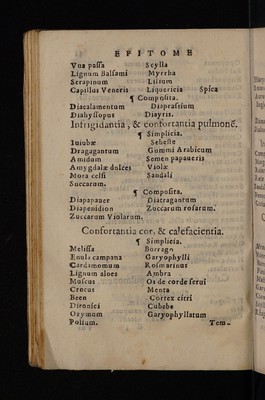 EPITOME
Vua passa Scylla
Lignum Balsami Myrrha
Serapinum Lilium
Capillus Veneris Liquericia Spica
¶ Composita.
Diacalamentum Diaprassium
Diahyssopus Diayris.
Infrigidantia, & confortantia pulmonē.
¶ Simplicia.
Iuiubæ Sebeste
Dragagantum Gummi Arabicum
Amidum Semen papaueris
Amygdalæ dulces Violæ
Mora celsi Sandali
Succarum.
¶ Composita.
Diapapauer Diatragantum
Diapenidion Zuccarum rosarum.
Zuccarum Violarum.
Confortantia cor, & calefacientia.
¶ Simplicia.
Melissa Borrago
Enula campana Garyophylli
Cardamomum Rosmarinus
Lignum aloes Ambra
Muscus Os de corde serui
Crocus Menta
Been Cortex citri
Dironici Cubebæ
Ozymum Garyophyllatum
Polium. Tem-